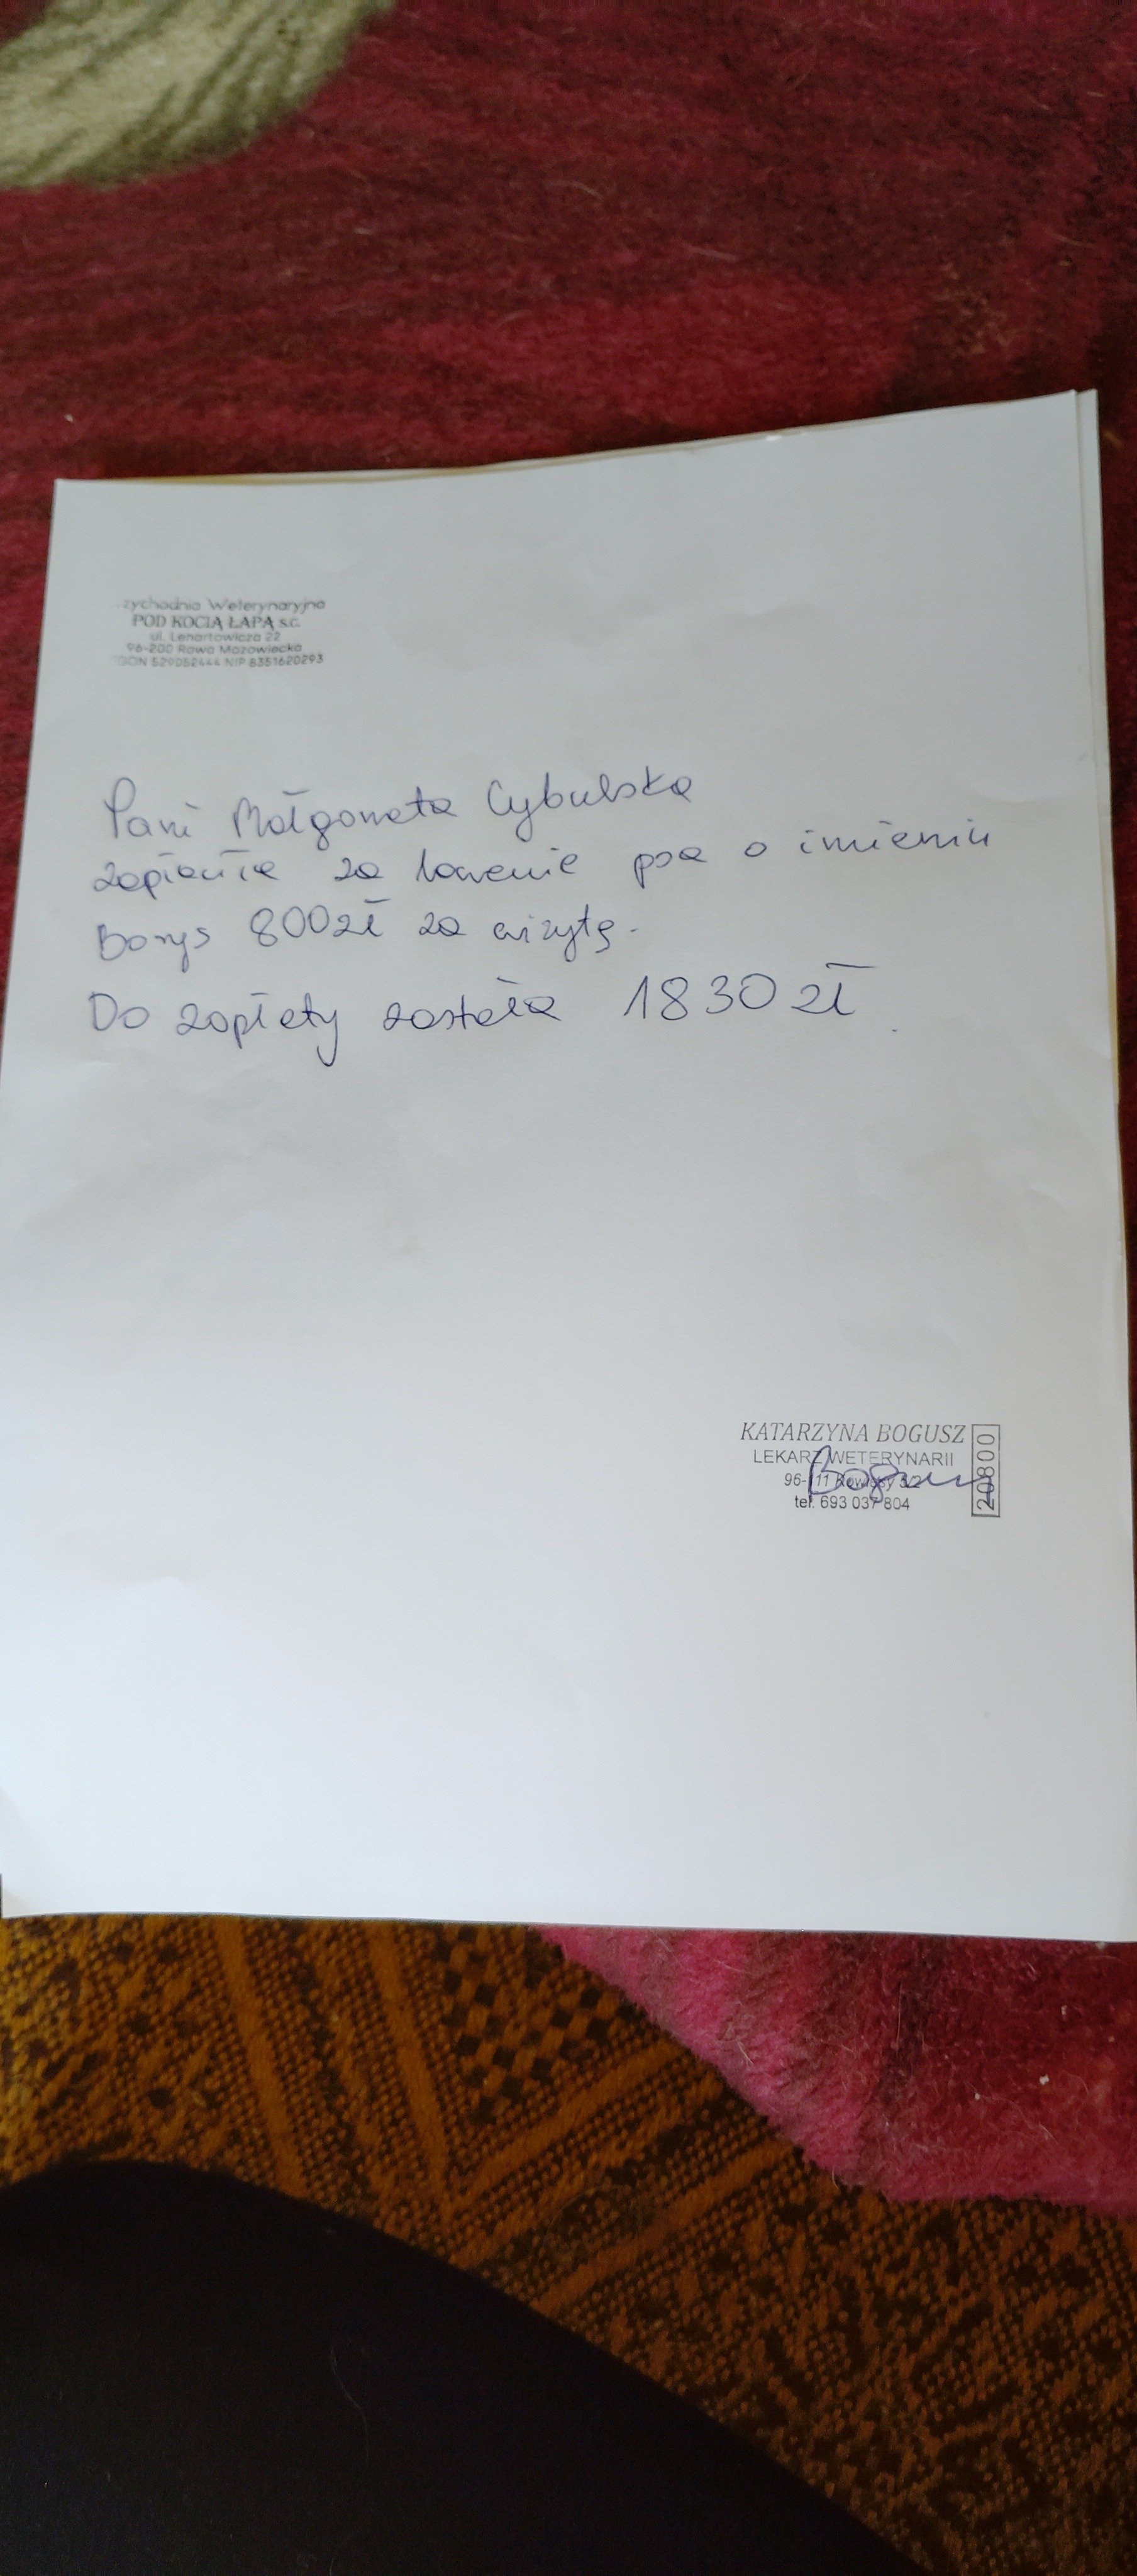 zychodnia Weterynaryjna
POD KOCIĄ ŁAPĄ s.c.
ul. Lenartowicza 22
96-200 Rawa Mazowiecka
GON 529052444 NIP 8351620293
Pani Małgorzata Cybulska
zapłaciła za leczenie psa o imieniu
Borys 800zł za wizytę.
Do zapłaty została 1830 zł.
KATARZYNA BOGUSZ
LEKARZ WETERYNARII
tel. 693 037 804
20800
Bogusz